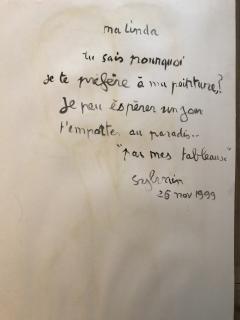 ma Linda
tu sais pourquoi
je te préfère à ma peinture?
Je peu éspérer un jour
t'emporter au paradis..
"par mes tableaux"
Sylvain
26 nov 1999